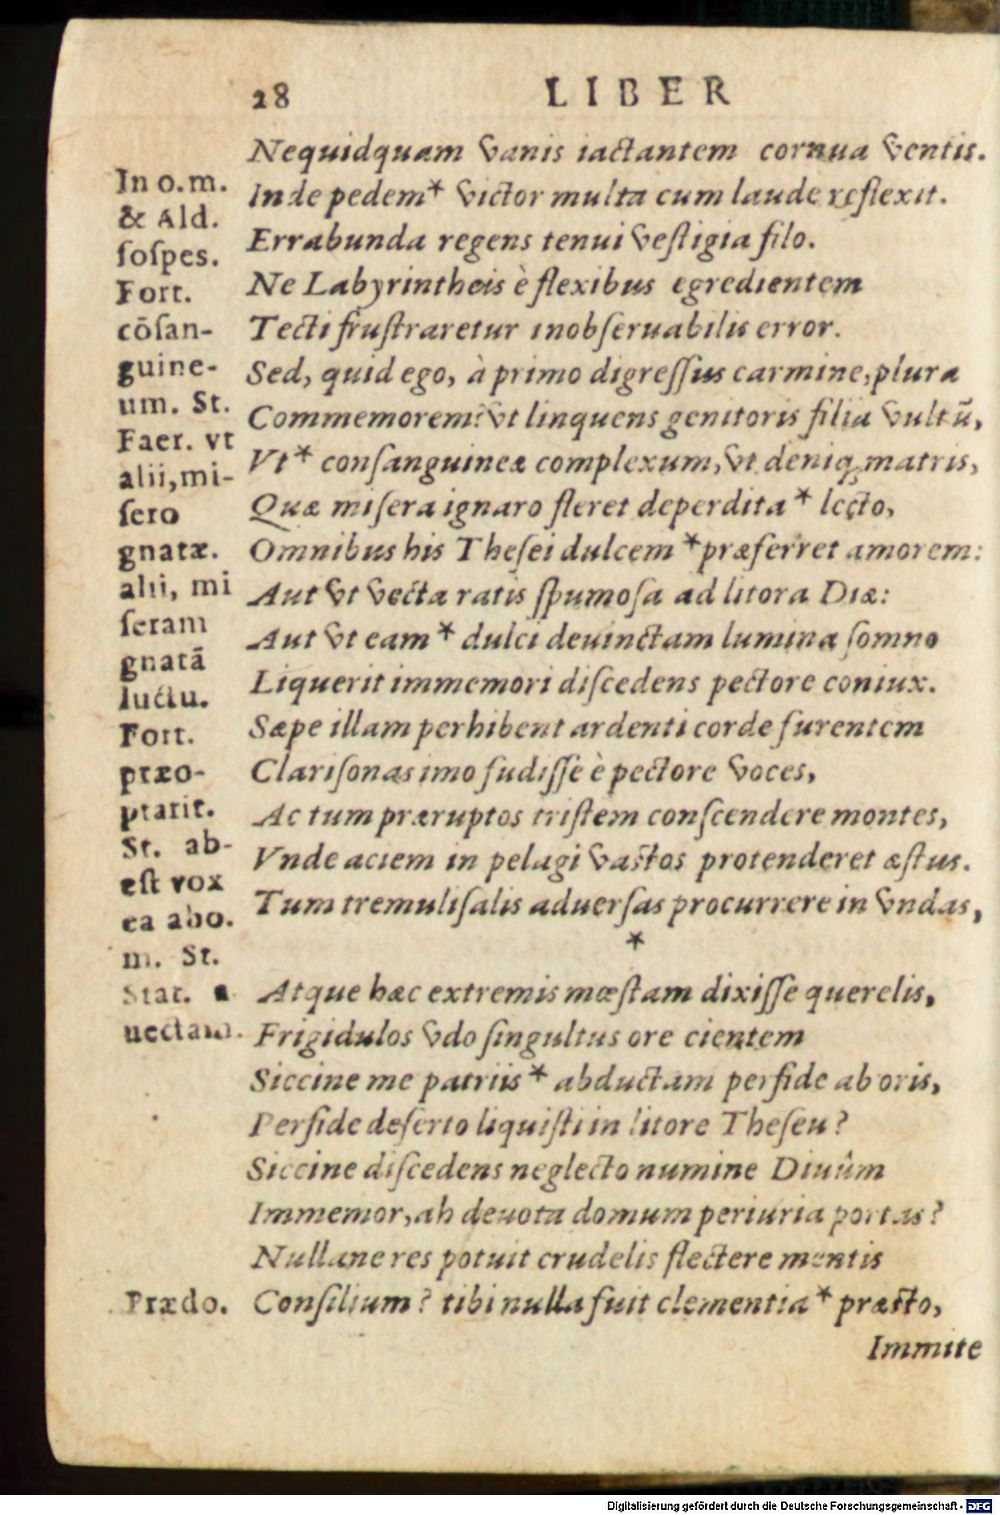 28 LIBER
Nequidquam vanis iactantem cornua ventis.
Inde pedem* victor multa cum laude reflexit.
Errabunda regens tenui vestigia filo.
Ne Labyrintheis è flexibus egredientem
Tecti frustraretur inobseruabilis error.
Sed, quid ego, à primo digressus carmine, plura
Commemorem? vt linquens genitoris filia vultū,
Vt* consanguineæ complexum, vt deniq; matris,
Quæ misera ignaro fleret deperdita* lecto,
Omnibus his Thesei dulcem *præferret amorem:
Aut vt vecta ratis spumosa ad litora Diæ:
Aut vt eam* dulci deuinctam lumina somno
Liquerit immemori discedens pectore coniux.
Sæpe illam perhibent ardenti corde furentem
Clarisonas imo fudisse è pectore voces,
Ac tum præruptos tristem conscendere montes,
Vnde aciem in pelagi vastos protenderet æstus.
Tum tremuli salis aduersas procurrere in vndas,
*
Atque hæc extremis mœstam dixisse querelis,
Frigidulos vdo singultus ore cientem
Siccine me patriis* abductam perfide ab oris,
Perfide deserto liquisti in litore Theseu?
Siccine discedens neglecto numine Diuûm
Immemor, ah deuota domum periuria portas?
Nullane res potuit crudelis flectere mentis
Consilium? tibi nulla fuit clementia* præsto,
Immite
In o.m.
& Ald.
sospes.
Fort.
cōsan-
guine-
um. St.
Faer. vt
alii, mi-
sero
gnatæ.
alii, mi
seram
gnatā
luctu.
Fort.
præo-
ptarit.
St. ab-
est vox
ea abo.
m. St.
Stat. a
uectam.
Prædo.
Digitalisierung gefördert durch die Deutsche Forschungsgemeinschaft - DFG